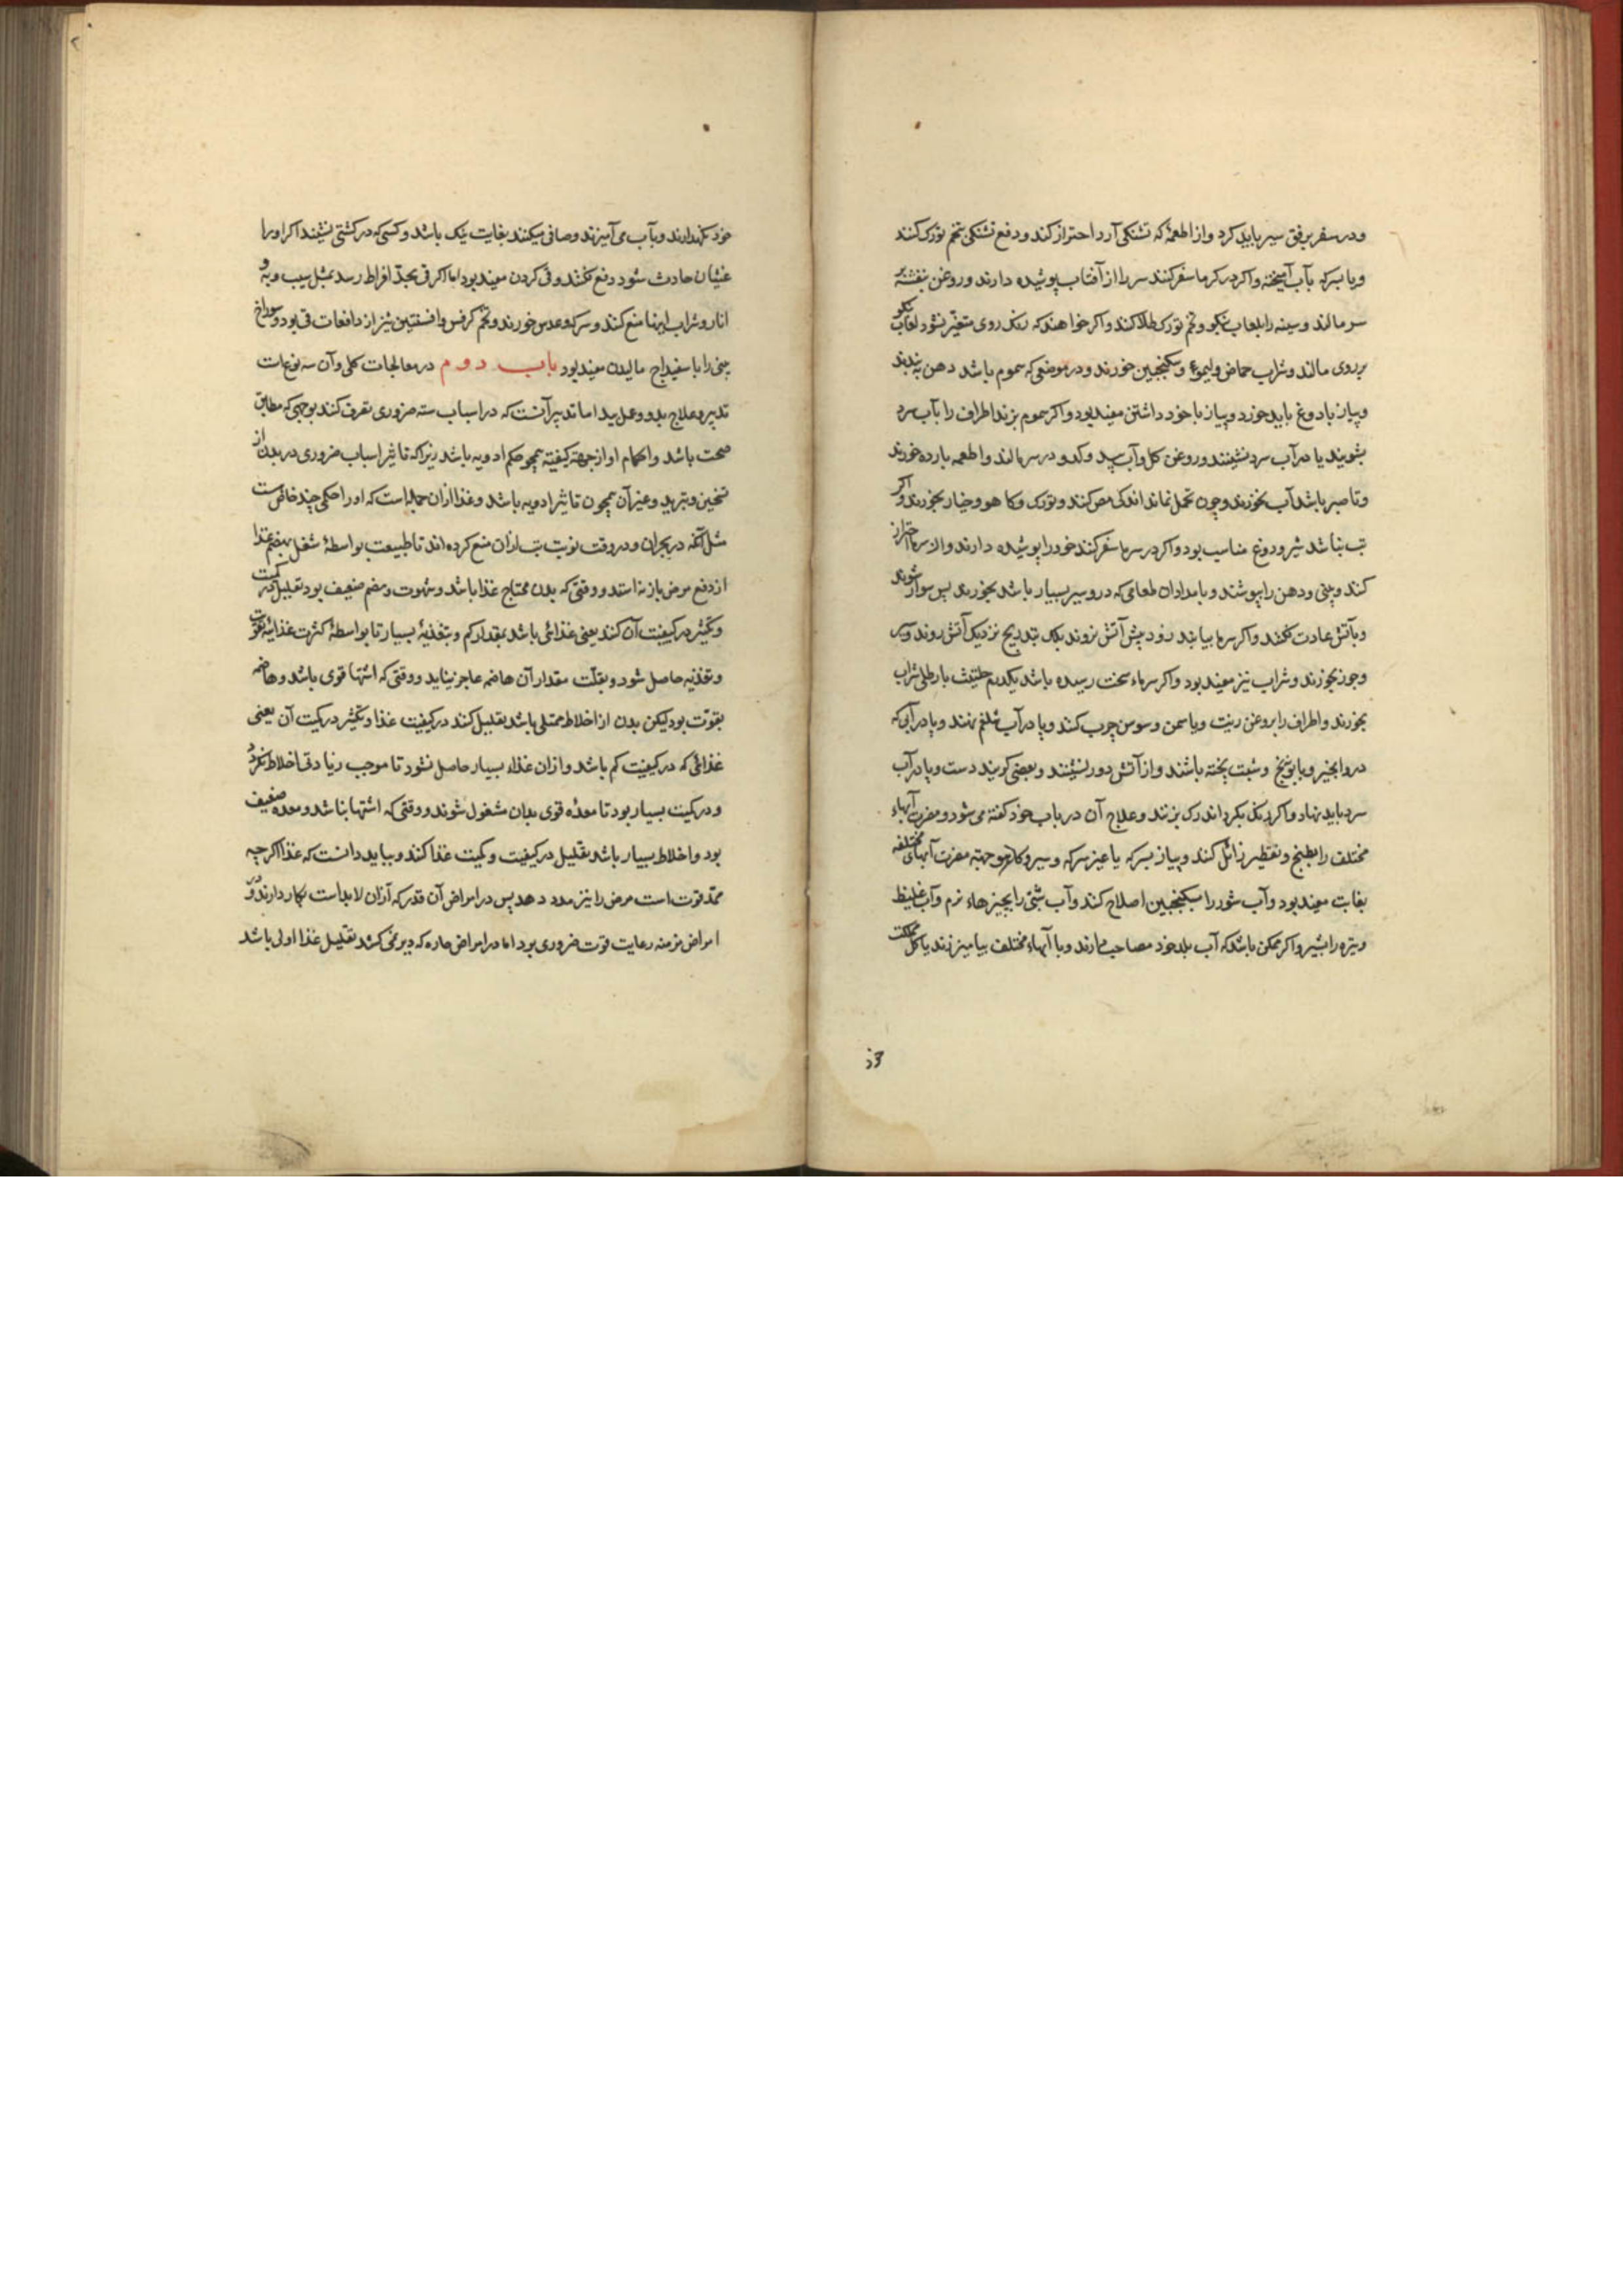 ودر سفر برفق سیر باید کرد واز اطعمهٔ که تشنکی آرد احتراز کند ودفع تشنکی بتخم تورک کنند
ویا بسرکه بآب آمیخته واکر در کرما سفر کنند سر را از آفتاب پوشیده دارند وروغن بنفشه بر
سر مالند وسینه را بلعاب بنکو وتخم تورک طلا کنند واکر خواهند که رنک روی متغیر نشود لعاب بنکو
بر روی مالند وشراب حماض ولیموء وسکنجبین خورند ودر موضعی که سموم باشد دهن به بندند
وپیاز با دوغ باید خورد وپیاز با خود داشتن مفید بود واکر سموم بزند اطراف را بآب سرد
بشویند یا در آب سرد نشینند وروغن کل وآب بید وکدو در سر مالند واطعمه بارده خورند
وتا صبر باشد آب نخورند وچون تحمل نماند اندکی مص کنند وتورک وکاهو وخیار بخورند واکر
تب نباشد شیر ودوغ مناسب بود واکر در سرما سفر کنند خود را پوشیده دارند واز سرما احتراز
کند وبینی ودهن را بپوشند وبامدادان طعامی که درو سیر بسیار باشد بخورند پس سوار شوند
وبآتش عادت نکنند واکر سرما بیابند زود پیش آتش نروند بلک بتدریج نزدیک آتش روند وسیر
وجوز بخورند وشراب نیز مفید بود واکر سرماء سخت رسیده باشد یکدرم حلتیت با رطلی شراب
بخورند واطراف را بروغن زیت ویاسمن وسوسن چرب کند وپا در آب شلغم نهند ویا در آبی که
درو انجیر وبابونج وشبت پخته باشند واز آتش دور نشینند وبعضی کویند دست وپا در آب
سرد باید نهاد واکر رنک بکرداند رک بزنند وعلاج آن در باب خود کفته می شود ومضرت آبهاء
مختلف را بطبخ وتقطیر زائل کند وپیاز بسرکه یا غیر سرکه وسیر وکاهو جهته مضرت آبهای مختلفه
بغایت مفید بود وآب شور را بسکنجبین اصلاح کند وآب شبی را بچیزهاء نرم وآب غلیظ
وتیره را بسیر واکر ممکن باشد که آب بلد خود مصاحب دارند وبا آبهاء مختلف بیامیزند یا کل مملکت
خود نکهدارند وبآب می آمیزند وصافی میکنند بغایت نیک باشد وکسی که در کشتی نشیند اکر اورا
غثیان حادث شود دفع نکنند وقی کردن مفید بود اما اکر قی بحد افراط رسد بمثل سیب وبه و
انار وشراب اینها منع کنند وسرکه وعدس خورند وتخم کرفس وافسنتین نیز از دافعات قی بود وسوراخ
بینی را با سفیداج مالیدن مفید بود باب دوم در معالجات کلی وآن سه نوع است
تدبیر وعلاج بدو وعمل ید اما تدبیر آنست که در اسباب سته ضروری تصرف کند بوجهی که مطابق
صحت باشد واحکام او از جهته کیفیة همچو حکم ادویه باشد زیرا که تاثیر اسباب ضروری در بدن از
تسخین وتبرید وغیر آن همچون تاثیر ادویه باشد وغذا از ان جمله است که اورا حکمی چند خاص است
مثل آنکه در بحران ودر وقت نوبت تب ازان منع کرده اند تا طبیعت بواسطهٔ شغل بهضم غذا
از دفع مرض باز نه استد ووقتی که بدن محتاج غذا باشد وشهوت وهضم ضعیف بود تقلیل در کمیت
وتکثیر در کیفیت آن کند یعنی غذائی باشد بمقدار کم وبتغذیهٔ بسیار تا بواسطهٔ کثرت غذائیة تقویت
وتغذیه حاصل شود وبقلت مقدار آن هاضمه عاجز نیاید ووقتی که اشتها قوی باشد وهاضمه
بقوت بود لیکن بدن از اخلاط ممتلی باشد تقلیل کند در کیفیت غذا وتکثیر در کمیت آن یعنی
غذائی که در کیفیت کم باشد وازان غذاء بسیار حاصل نشود تا موجب زیادتی اخلاط نکردد
ودر کمیت بسیار بود تا معدهٔ قوی بدان مشغول شوند ووقتی که اشتها نباشد ومعده ضعیف
بود واخلاط بسیار باشد تقلیل در کیفیت وکمیت غذا کند وبباید دانست که غذا اکرچه
ممد قوت است مرض را نیز مدد دهد پس در امراض آن قدر که ازان لابد است بکار دارند ودر
امراض مزمنه رعایت قوت ضروری بود اما در امراض حاره که دیر نمی کشد تقلیل غذا اولی باشد